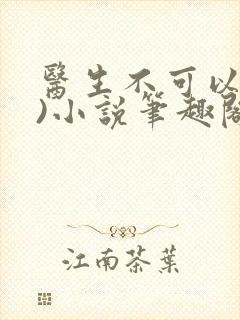 醫生不可以
)小說筆趣閣
江南茶葉